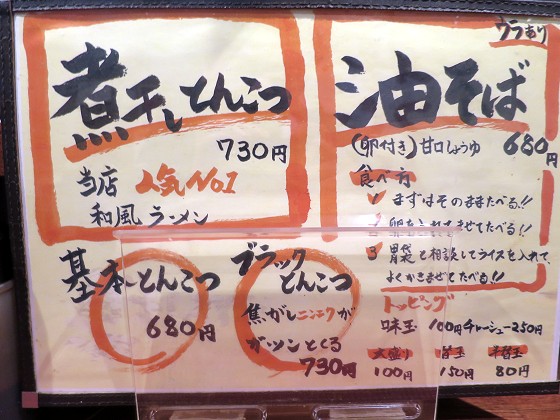 煮干しとんこつ
730円
当店 人気No.1
和風ラーメン
ウラあり
油そば
(卵付き)甘口しょうゆ 680円
食べ方
1 まずはそのままたべる!!
2 卵をいれまぜてたべる!!
3 胃袋と相談してライスを入れて、
よくかきまぜてたべる!!
基本とんこつ
680円
ブラックとんこつ
焦がしニンニクが
ガツンとくる
730円
トッピング
味玉 100円 チャーシュー250円
大盛り 替玉 半替玉
100円 150円 80円